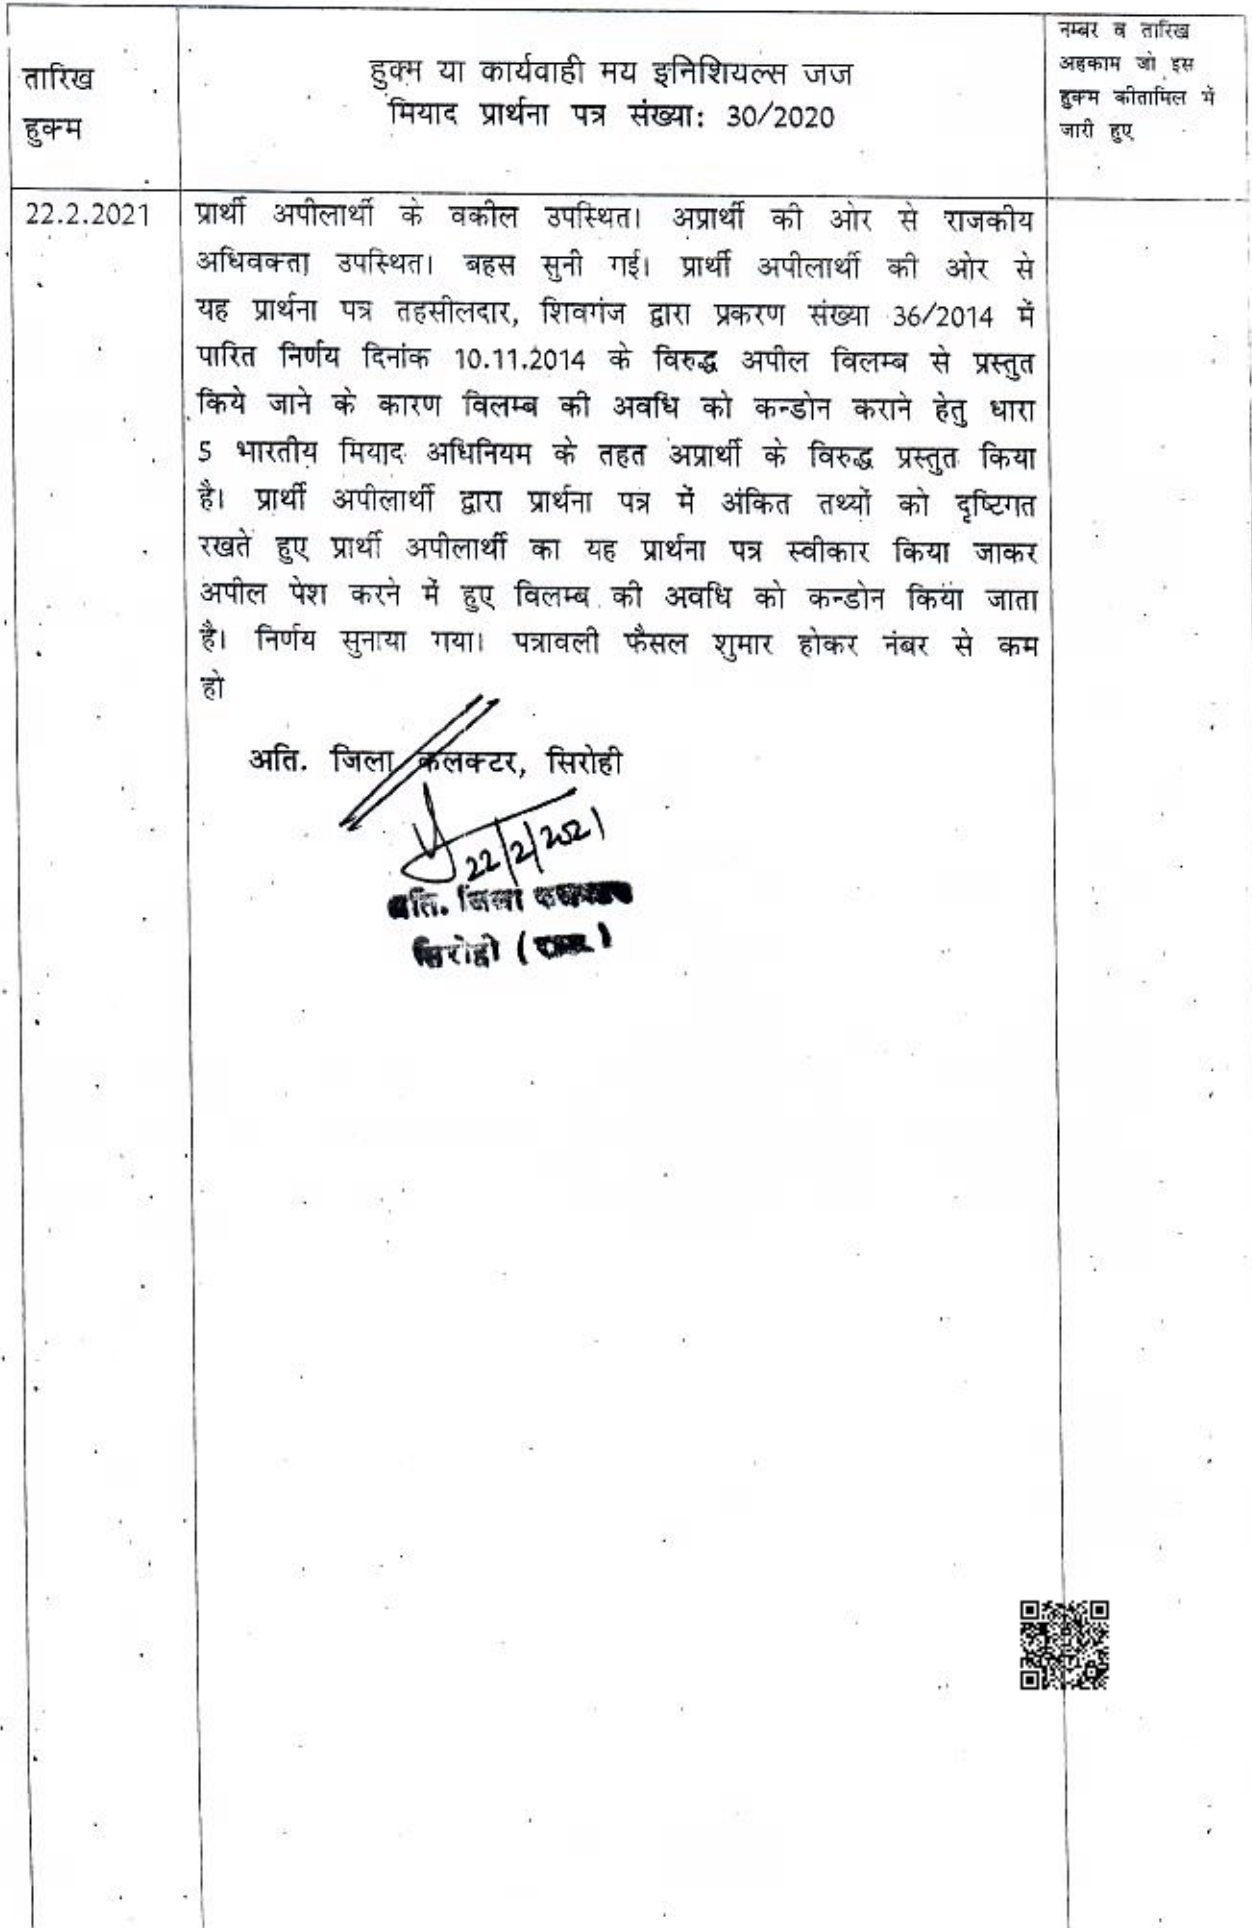 तारिख
हुक्म
हुक्म या कार्यवाही मय इनिशियल्स जज
मियाद प्रार्थना पत्र संख्या: 30/2020
नम्बर व तारिख
अहकाम जो इस
हुक्म कीतामिल में
जारी हुए
22.2.2021
प्रार्थी अपीलार्थी के वकील उपस्थित। अप्रार्थी की ओर से राजकीय
अधिवक्ता उपस्थित। बहस सुनी गई। प्रार्थी अपीलार्थी की ओर से
यह प्रार्थना पत्र तहसीलदार, शिवगंज द्वारा प्रकरण संख्या 36/2014 में
पारित निर्णय दिनांक 10.11.2014 के विरुद्ध अपील विलम्ब से प्रस्तुत
किये जाने के कारण विलम्ब की अवधि को कन्डोन कराने हेतु धारा
5 भारतीय मियाद अधिनियम के तहत अप्रार्थी के विरुद्ध प्रस्तुत किया
है। प्रार्थी अपीलार्थी द्वारा प्रार्थना पत्र में अंकित तथ्यों को दृष्टिगत
रखते हुए प्रार्थी अपीलार्थी का यह प्रार्थना पत्र स्वीकार किया जाकर
अपील पेश करने में हुए विलम्ब की अवधि को कन्डोन किया जाता
है। निर्णय सुनाया गया। पत्रावली फैसल शुमार होकर नंबर से कम
हो
अति. जिला कलक्टर, सिरोही
22/2/2021
अति. जिला
सिरोही